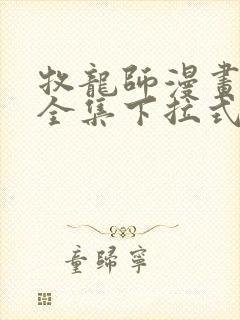 牧龍師漫畫
全集下拉式
童歸寧